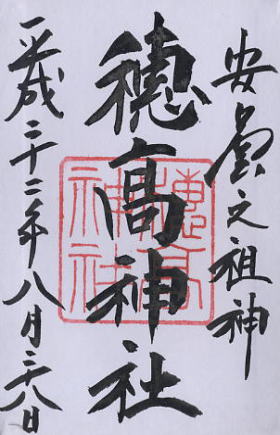 安曇之祖神
穗高神社
平成二十二年八月二十八日
穗高
神社